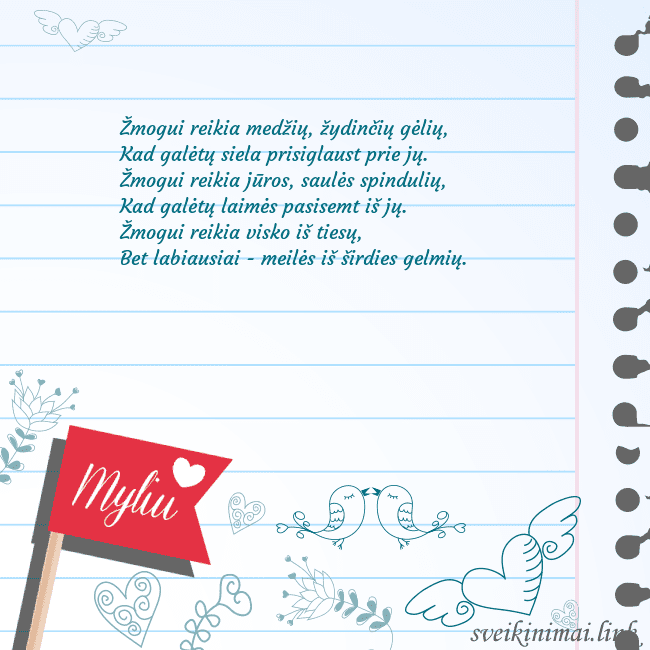 Žmogui reikia medžių, žydinčių gėlių,
Kad galėtų siela prisiglaust prie jų.
Žmogui reikia jūros, saulės spindulių,
Kad galėtų laimės pasisemt iš jų.
Žmogui reikia visko iš tiesų,
Bet labiausiai - meilės iš širdies gelmių.
Myliu
sveikinimai.link